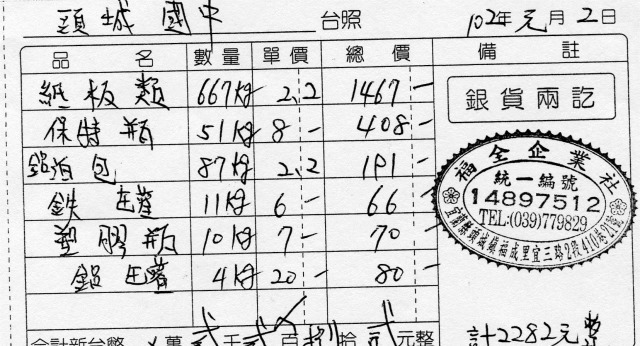 頭城 國中 台照 102年元月2日
品名 數量 單價 總價 備註
紙板類 667kg 2,2 1467-
保特瓶 51kg 8- 408-
鋁泊包 87kg 2,2 191-
鉄 庄薩 11kg 6- 66-
塑膠瓶 10kg 7- 70
鋁 庄薩 4kg 20- 80-
銀貨兩訖
福全企業社
統一編號
14897512
TEL:(039)779829
宜蘭縣頭城鎮福成里宜三路2段410巷21號
合計新台幣 萬貳千貳百捌拾貳元整
計2282元整